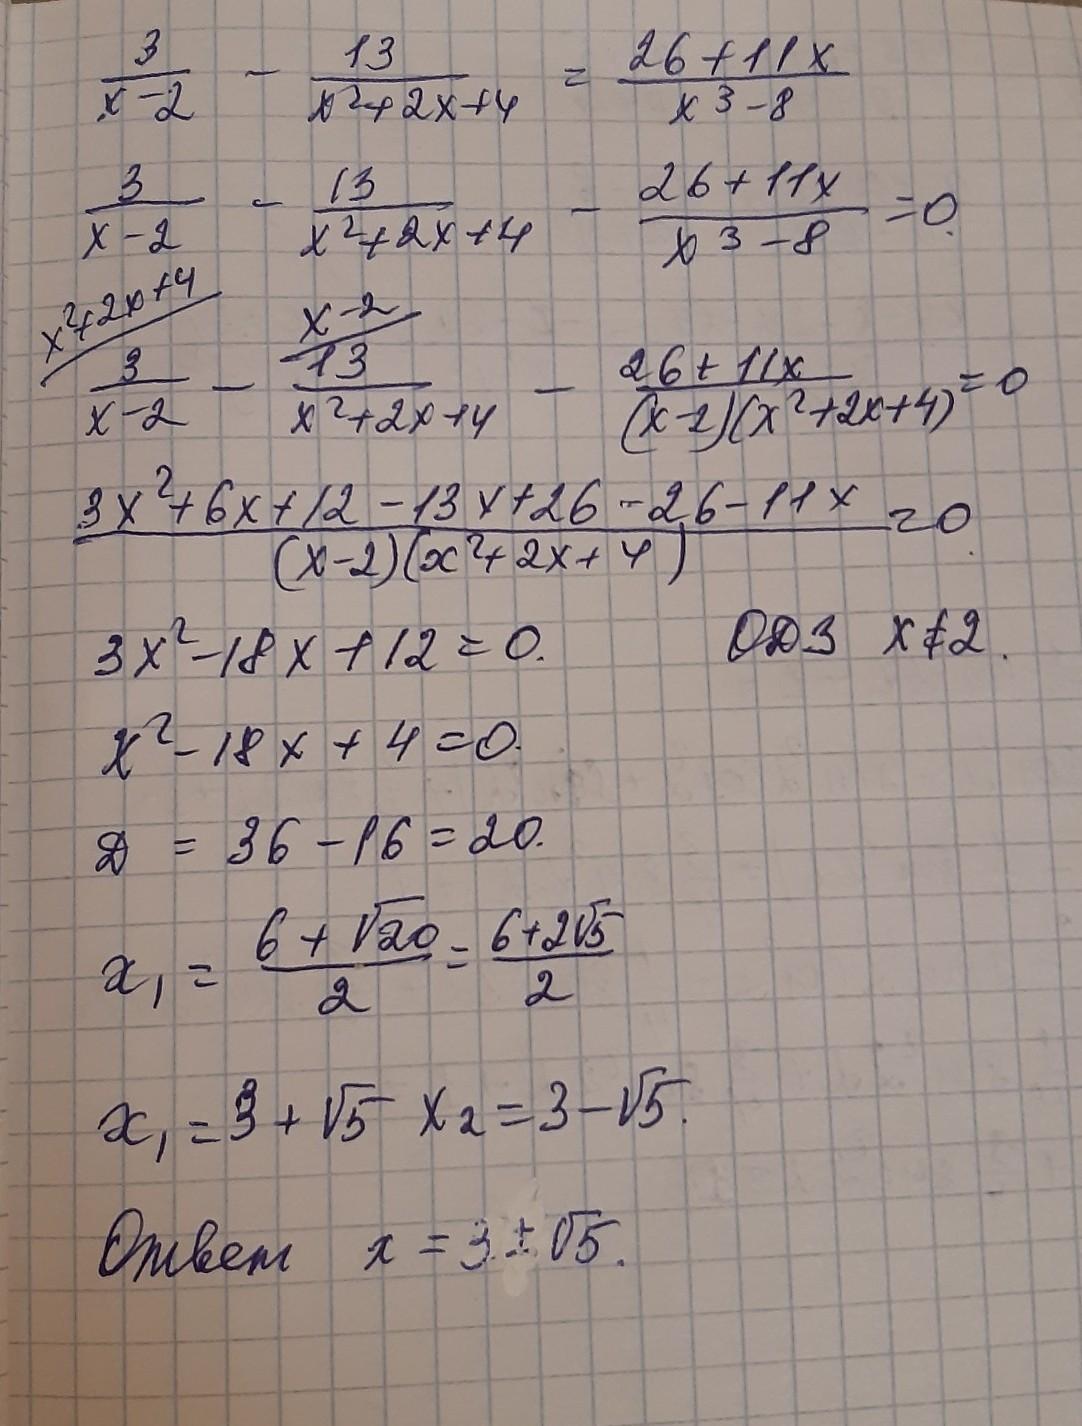 3/(x-2) - 13/(x²+2x+4) = (26+11x)/(x³-8)
3/(x-2) - 13/(x²+2x+4) - (26+11x)/(x³-8) = 0.
x²+2x+4 x-2
3/(x-2) - 13/(x²+2x+4) - (26+11x)/((x-2)(x²+2x+4)) = 0
(3x²+6x+12-13x+26-26-11x)/((x-2)(x²+2x+4)) = 0.
3x²-18x+12=0. ОДЗ x≠2.
x²-18x+4=0.
Д = 36-16=20.
x₁ = (6+√20)/2 = (6+2√5)/2
x₁=3+√5 x₂=3-√5.
Ответ x=3±√5.